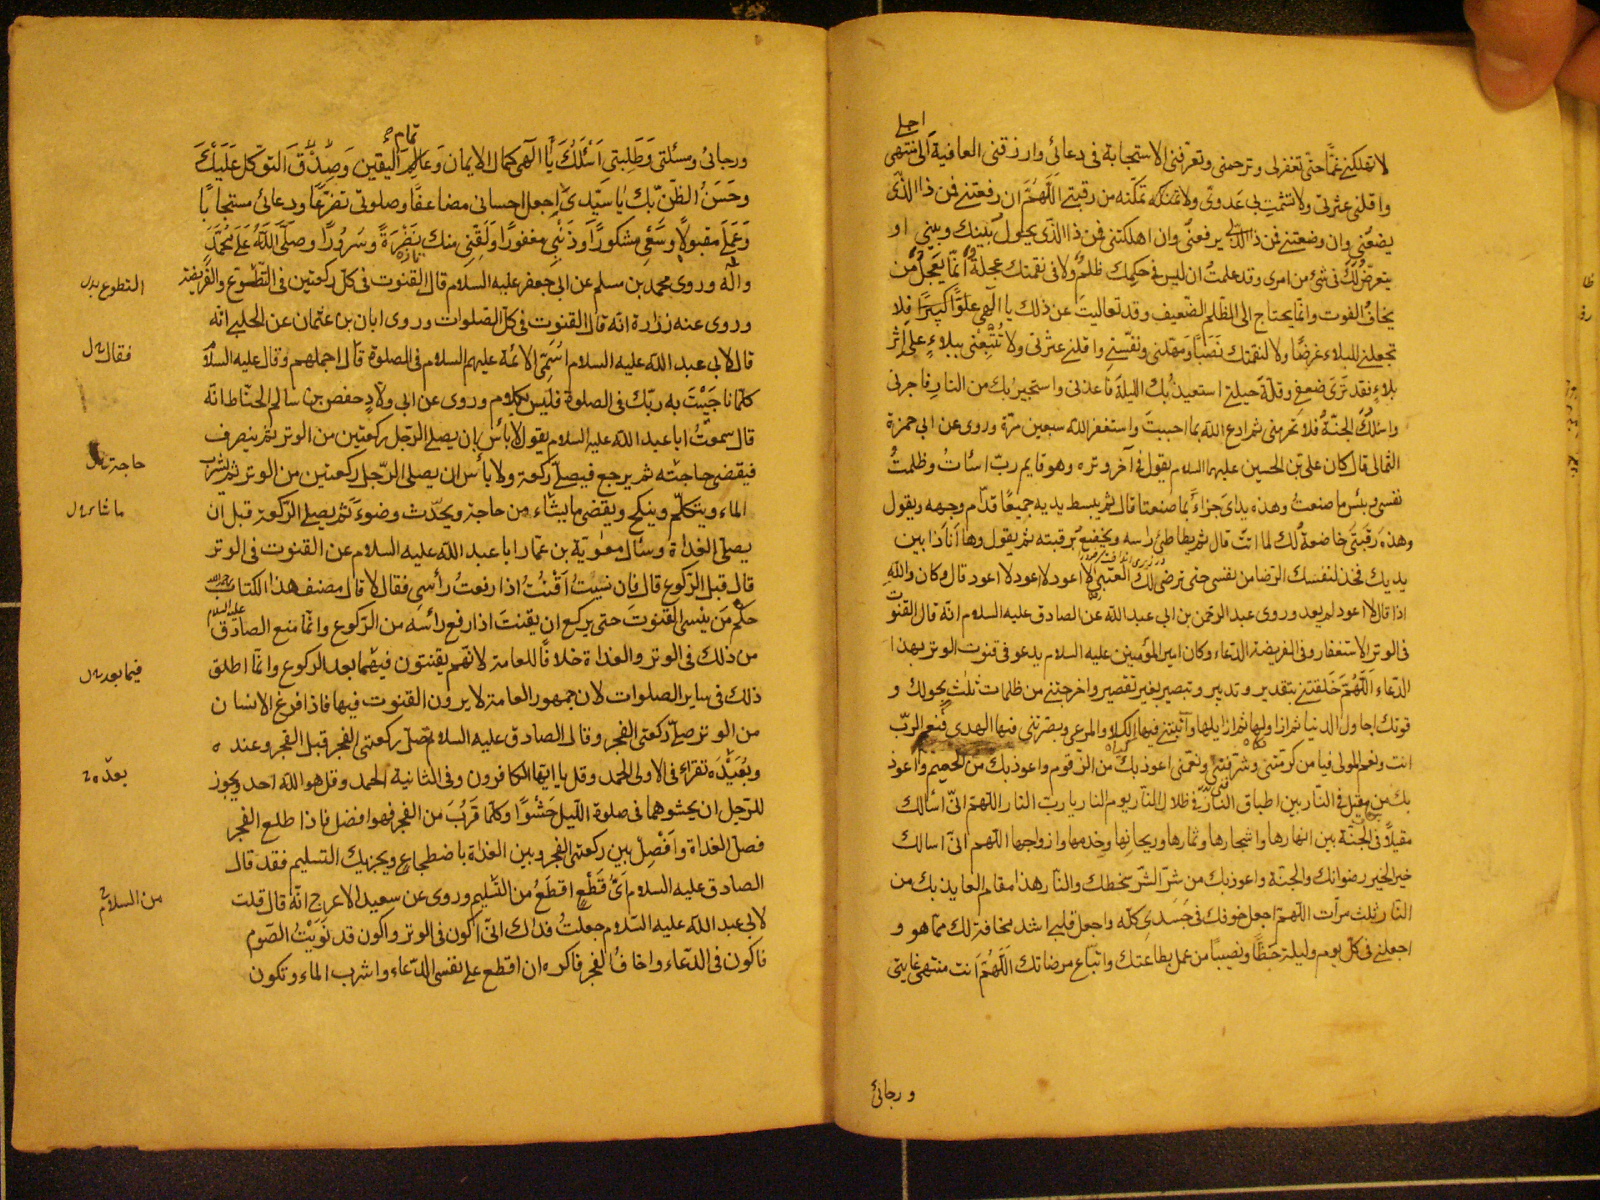 اجلي
لا تهلكني غمّا حتّى تغفر لى وترحمنى وتعرّفنى الاستجابة فى دعائى وارزقنى العافية الى منتهى
واقلنى عثرتى ولا تشمت بى عدوى ولا تمكنه من رقبتى اللّهمّ ان رفعتنى فمن ذا الذّى
يضعنى وان وضعتنى فمن ذا الذى يرفعنى وان اهلكتنى فمن ذا الذى يحول بينك وبينى او
يتعرّض لك فى شئ من امرى وقد علمت ان ليس فى حكمك ظلم ولا فى نقمتك عجلة انّما يعجل من
يخاف الفوت وانّما يحتاج الى الظّلم الضّعيف وقد تعاليت عن ذلك يا الهى علوّا كبيرا فلا
تجعلنى للبلاء غرضا ولا لنقمتك نصبا ومهّلنى ونفّسنى واقلنى عثرتى ولا تتبعنى ببلاء على اثر
بلاء فقد ترى ضعفى وقلّة حيلتى استعيذ بك الليلة فاعذنى واستجير بك من النار فاجرنى
واسئلك الجنّة فلا تحرمنى ثم ادع اللّه بما احببت واستغفر اللّه سبعين مرّة وروى عن ابى حمزة
الثمالى قال كان على بن الحسين عليهما السلام يقول فى آخر وتره وهو قايم ربّ اسأت وظلمت
نفسى وبئس ما صنعت وهذه يداى جزاء بما صنعتا قال ثم يبسط يديه جميعا قدّام وجهه ويقول
وهذه رقبتى خاضعة لك لما اتت قال ثم يطاطئ راسه ويخضع برقبته ثم يقول وها انا ذا بين
يديك فخذ لنفسك الرّضا من نفسى حتى ترضى لك العتبى لا اعود لا اعود لا اعود قال وكان واللّه
اذا قال لا اعود لم يعد وروى عبد الرّحمن بن ابى عبد اللّه عن الصادق عليه السلام انّه قال القنوت
فى الوتر الاستغفار وفى الفريضة الدّعاء وكان امير المؤمنين عليه السلام يدعو فى قنوت الوتر بهذا
الدّعاء اللّهمّ خلقتنى بتقدير وتدبير وتبصير بغير تقصير واخرجتنى من ظلمات ثلث بحولك و
قوتك احاول الدنيا ثم ازاولها ثم ازايلها وآتيتنى فيها الكلاء والمرعى وبصّرتنى فيها الهدى فنعم الربّ
انت ونعم المولى فيا من كرّمتنى وشرّفتنى ونعمتنى اعوذ بك من الزّقوم واعوذ بك من الحميم واعوذ
بك من مقيل فى النّار بين اطباق النّار فى ظلال النّار يوم النار يا ربّ النار اللّهمّ انّى أسألك
مقيلا فى الجنّة بين انهارها واشجارها وثمارها وريحانها وخدمها وازواجها اللّهم انّى اسالك
خير الخير رضوانك والجنّة واعوذ بك من شرّ الشرّ سخطك والنار هذا مقام العايذ بك من
النّار ثلث مرّات اللّهمّ اجعل خوفك فى جسدى كلّه واجعل قلبى اشد مخافة لك ممّا هو و
اجعلنى فى كلّ يوم وليلة حظّا ونصيبا من عمل بطاعتك واتّباع مرضاتك اللّهمّ انت منتهى غايتى
ورجائى
تمام
ورجائى ومسئلتى وطلبتى اسئلك يا الهى كمال الايمان وعالم اليقين وصدق التوكّل عليك
وحسن الظّنّ بك يا سيّدى اجعل احسانى مضاعفا وصلوتى تضرّعا ودعائى مستجابا
وعملى مقبولا وسعيى مشكورا وذنبى مغفورا ولقّنى منك نضرة وسرورا وصلّى اللّه على محمّد
وآله وروى محمد بن مسلم عن ابى جعفر عليه السلام قال القنوت فى كلّ ركعتين فى التّطوّع والفريضة
التطوع
وروى عنه زرارة انّه قال القنوت فى كلّ الصّلوات وروى ابان بن عثمان عن الحلبى انّه
قال لابى عبد اللّه عليه السلام اسمّى الائمّة عليهم السلام فى الصلوة قال اجملهم وقال عليه السلام
فقال
كلّما ناجيت به ربّك فى الصلوة فليس بكلام وروى عن ابى ولّاد حفص بن سالم الحنّاط انّه
قال سمعت ابا عبد اللّه عليه السلام يقول لا بأس ان يصلى الرّجل ركعتين من الوتر ثم ينصرف
فيقضى حاجته ثم يرجع فيصلّى ركعة ولا بأس ان يصلى الرّجل ركعتين من الوتر ثم يشرب
حاجة
الماء ويتكلّم وينكح ويقضى ما يشاء من حاجة ويحدّث وضوء ثم يصلى الرّكعة قبل ان
ما شاء
يصلّى الغداة وسئال معوية بن عمّار ابا عبد اللّه عليه السلام عن القنوت فى الوتر
قال قبل الرّكوع قال فان نسيت اقنت اذا رفعت رأسى فقال لا قال مصنف هذا الكتاب
حكم من ينسى القنوت حتى يركع ان يقنت اذا رفع رأسه من الرّكوع وانّما منع الصادق عليه السلام
من ذلك فى الوتر والغداة خلافا للعامة لانّهم يقنتون فيهما بعد الركوع وانّما اطلق
فيما بعد
ذلك فى ساير الصلوات لان جمهور العامة لا يرون القنوت فيها فاذا فرغ الانسان
من الوتر صلّى ركعتى الفجر وقال الصادق عليه السلام صلّ ركعتى الفجر قبل الفجر وعنده
وبعيده تقراء فى الاولى الحمد وقل يا ايّها الكافرون وفى الثانية الحمد وقل هو اللّه احد ويجوز
بعده
للرّجل ان يحشوهما فى صلوة اللّيل حشوا وكلّما قرب من الفجر فهو افضل فاذا طلع الفجر
فصلّ الغداة وافصل بين ركعتى الفجر وبين الغداة باضطجاع ويجزيك التسليم فقد قال
الصادق عليه السلام اىّ قطع اقطع من التّسليم وروى عن سعيد الاعرج انّه قال قلت
من السلام
لابى عبد اللّه عليه السّلام جعلت فداك انّى اكون فى الوتر واكون قد نويت الصّوم
فاكون فى الدّعاء واخاف الفجر فاكره ان اقطع على نفسى الدّعاء واشرب الماء وتكون